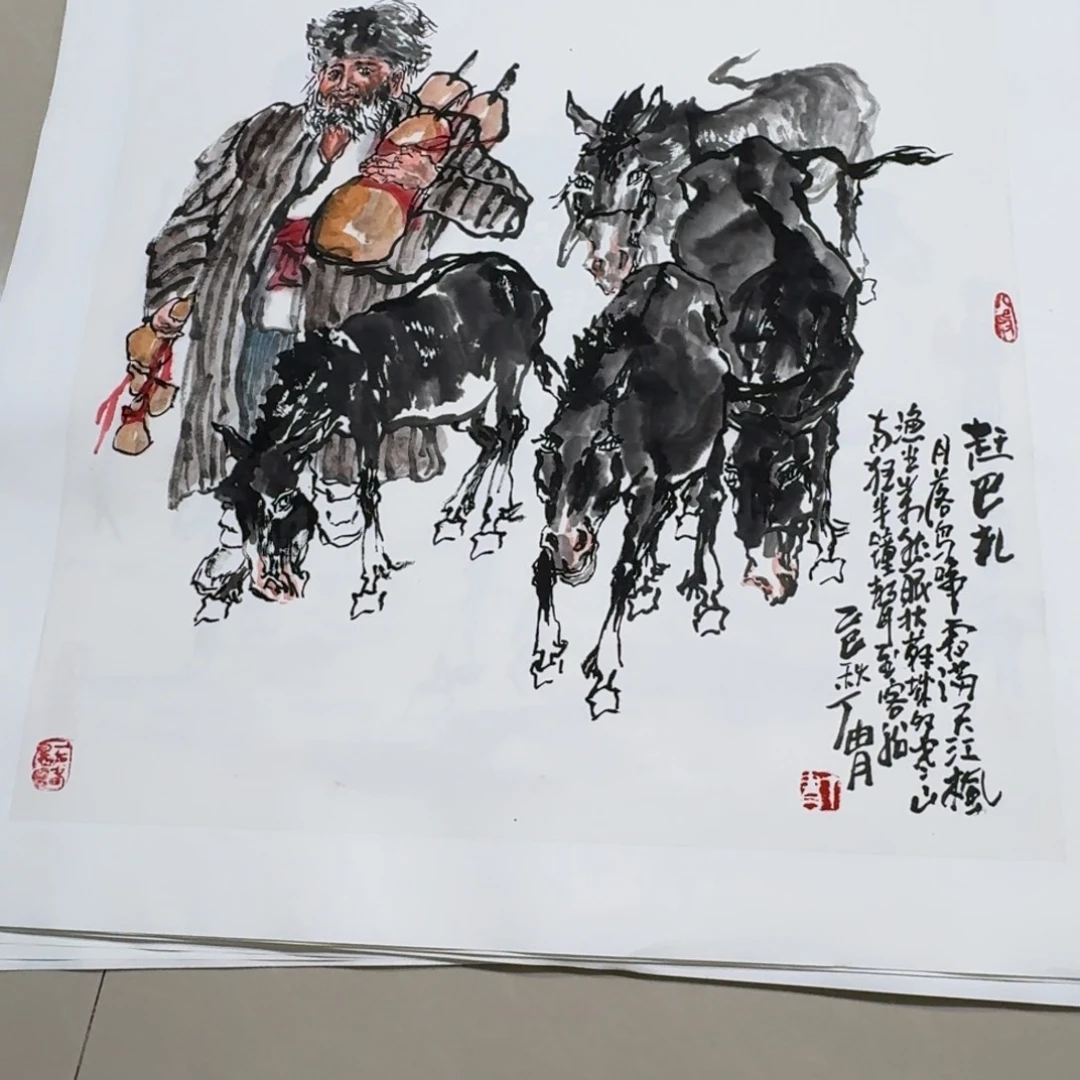 赶巴扎
月落乌啼霜满天江楓
渔火对愁眠姑蘇城外寒山
寺夜半鐘声到客船
秋